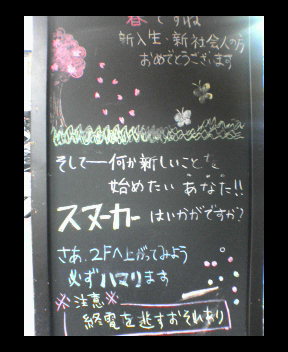 春ですね
新入生・新社会人の方
おめでとうございます
そして──何か新しいことを
始めたいあなた!!
スヌーカーはいかがですか?
さあ、2Fへ上がってみよう
必ずハマります
※注意※
終電を逃すおそれあり